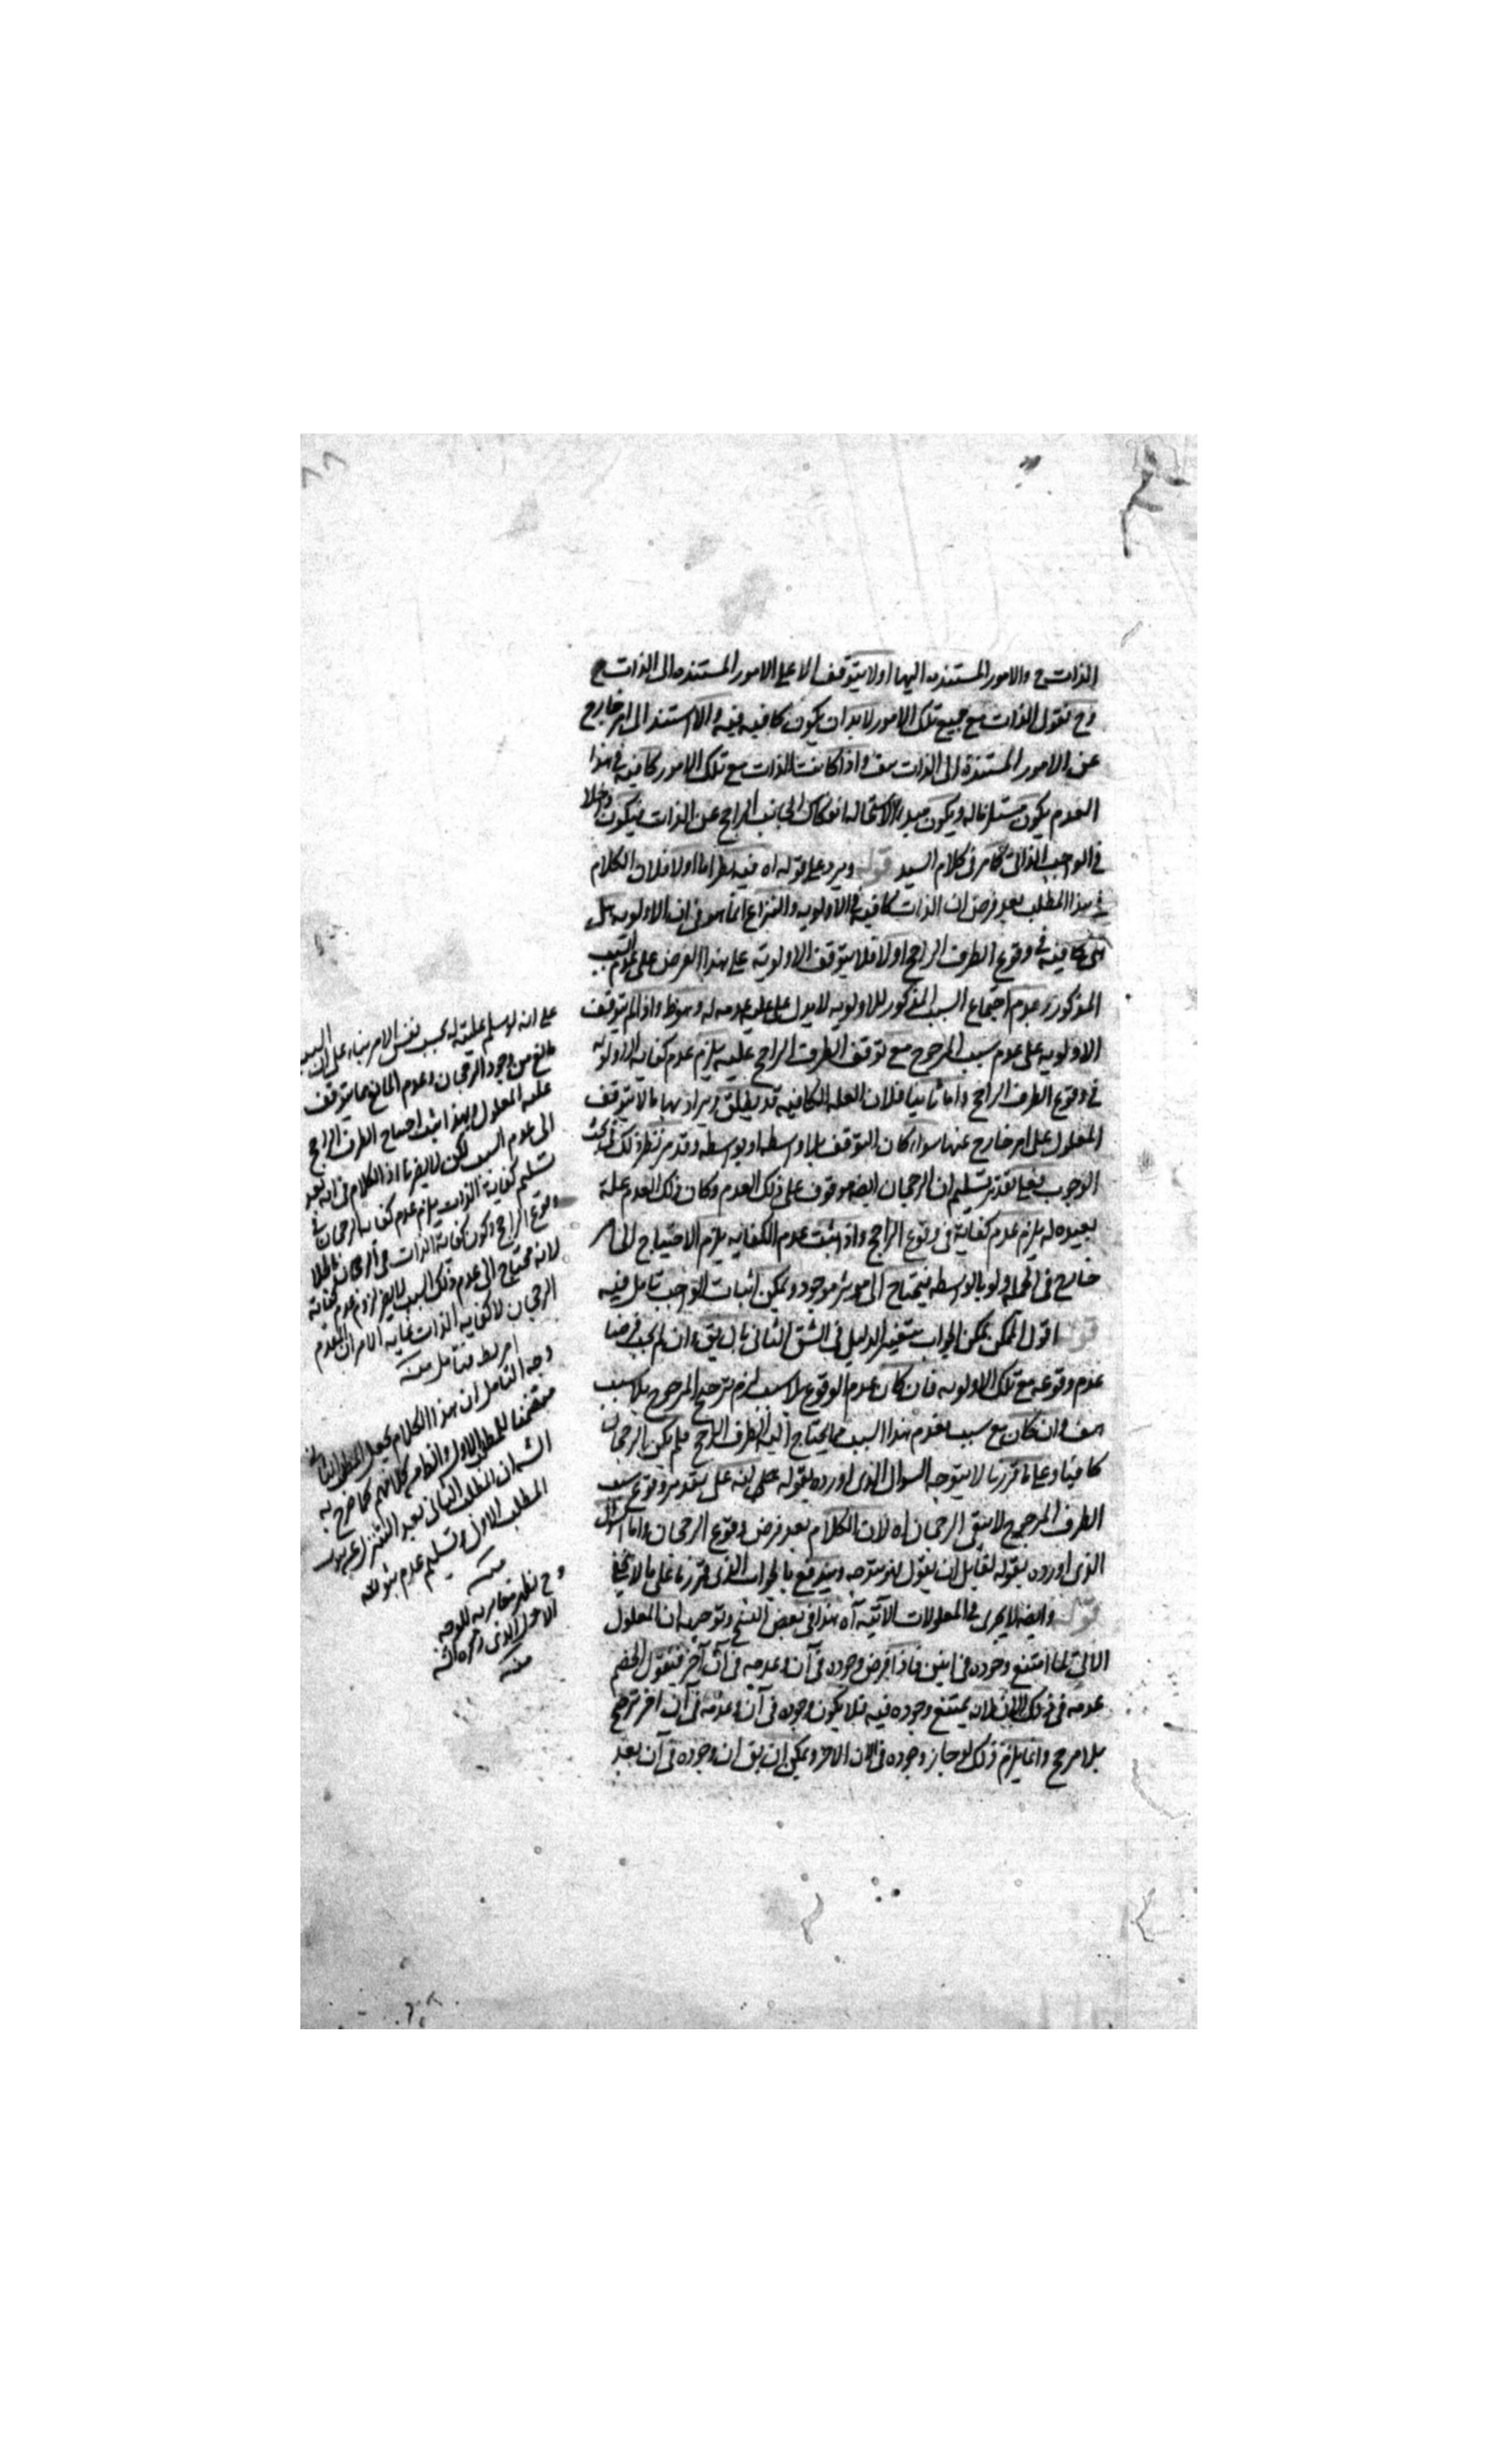 الذات ح والامور المستنده اليها اولا يتوقف الا على الامور المستنده الى الذات ح
وح نقول الذات مع جميع تلك الامور لا بد ان يكون كافيه فيه والا استند الى امر خارج
عن الامور المستندة الى الذات هف واذا كانت الذات مع تلك الامور كافيه في هذا
العدم يكون مستلزما له ويكون مبدء لاستحاله انفكاك الجانب الراجح عن الذات فيكون داخلا
في الواجب الذاتي كما مر في كلام السيد قوله ويرد على قوله اه فيه نظر اما اولا فلان الكلام
في هذا المطلب بعد فرض ان الذات كافيه في الاولويه والنزاع انما هو في ان الاولويه هل
هي كافيه في وقوع الطرف الراجح اولا فلا يتوقف الاولويه على هذا الفرض على عدم السبب
المذكور وعدم اجتماع السبب المذكور للاولويه لا يدل على علية عدمه له وهو ظ واذا لم يتوقف
الاولويه على عدم سبب المرجوح مع توقف الطرف الراجح عليه يلزم عدم كفايه الاولويه
في وقوع الطرف الراجح واما ثانيا فلان العله الكافيه قد يطلق ويراد بها ما لا يتوقف
المعلول على امر خارج عنها سواء كان التوقف بلا واسطه او بواسطه وقد مر نظير ذلك في بحث
الوجوب فعلى تقدير تسليم ان الرجحان ايضا موقوف على ذلك العدم وكان ذلك العدم علة
بعيده له يلزم عدم كفاية في وقوع الراجح واذا ثبت عدم الكفايه يلزم الاحتياج الى امر
خارج في الجمله ولو بالواسطه فيحتاج الى مؤثر موجود ويمكن اثبات الواجب تامل فيه
قوله اقول الممكن يمكن الجواب بتغيير الدليل في الشق الثاني بان يق وان لم يجب فرضنا
عدم وقوعه مع تلك الاولويه فان كان عدم الوقوع بلا سبب لزم ترجيح المرجوح بلا سبب
هف وان كان مع سبب فعدم هذا السبب مما يحتاج اليه الطرف الراجح فلم يكن الرجحان
كافيا وعلى ما قررنا لا يتوجه السوال الذي اورده بقوله على انه على تقدير وقوع سبب
الطرف المرجوح لا يبقى الرجحان اه لان الكلام بعد فرض وقوع الرجحان واما السؤال
الذي اورده بقوله لقايل ان يقول فهو متوجه ويندفع بالجواب الذي قررنا على ما لا يخفى
قوله وايضا لا يجرى في المعلولات الآنيه آه هذا في بعض النسخ وتوجيهه ان المعلول
الآني لما امتنع وجوده في آنين فاذا فرض وجوده في آن وعدمه في آن آخر فنقول الخصم
عدمه في ذلك الآن لانه يمتنع وجوده فيه فلا يكون وجوده في آن وعدمه في آن اخر ترجح
بلا مرجح وانما يلزم ذلك لو جاز وجوده في الان الاخر ويمكن ان يق ان وجوده في آن بعد
على انه لو سلم عليته له بحسب نفس الامر بناء على ان السبب
مانع من وجود الرجحان وعدم المانع مما يتوقف
عليه المعلول وبهذا يثبت احتياج الطرف الراجح
الى عدم السبب لكن لا يضرنا اذ الكلام في انه بعد
تسليم كفاية الذات يلزم عدم كفاية الرجحان في
وقوع الراجح وكون كفاية الذات في الرجحان باطلا
لانه محتاج الى عدم ذلك السبب لا يضر لزوم عدم كفاية
الرجحان لا كفايه الذات غايه الامر ان العدم
فتامل منه
وجه التامل ان هذا الكلام يجعل المطلب الثاني
متضمنا للمطلب الاول والظاهر من كلامهم كما صرح به
الش ان المطلب الثاني بعد التنزل عن
المطلب الاول وتسليم عدم ثبوته
منه
وح نظهر مغايرته للوجه
الاول الذي ذكره الش
منه